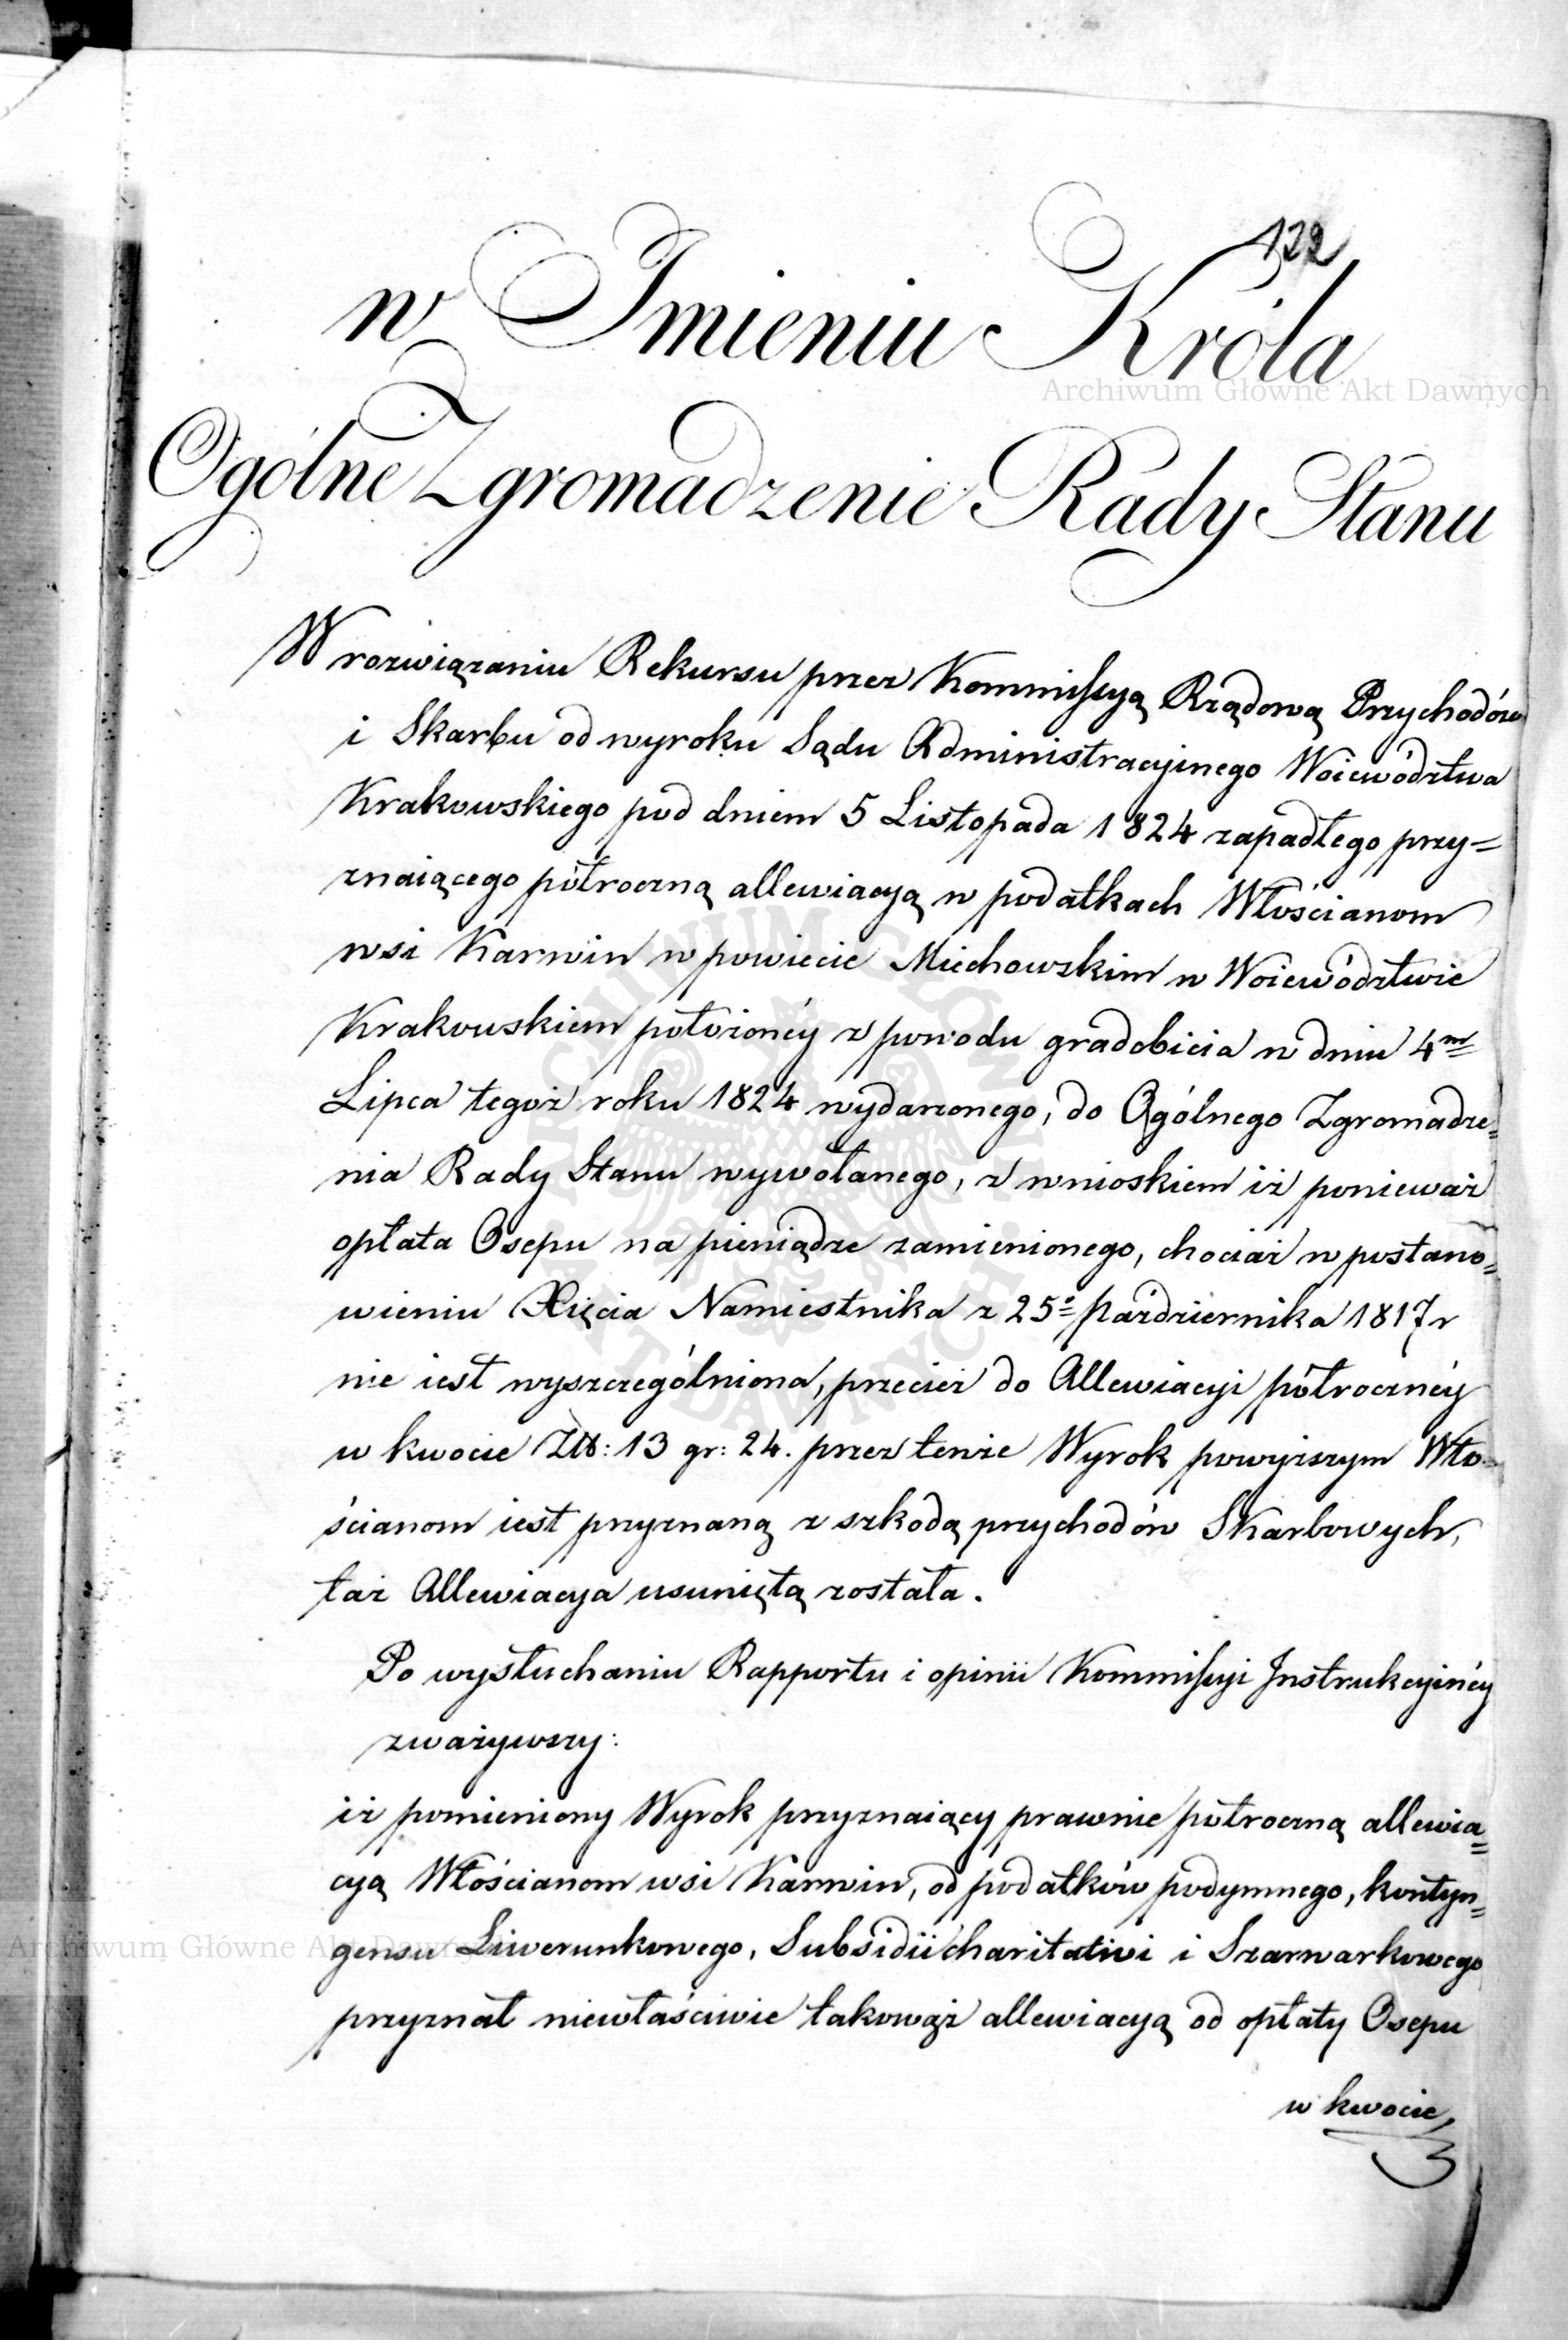 122
w Imieniu Króla
Archiwum Główne Akt Dawnych
Ogólne Zgromadzenie Rady Stanu
W rozwiązaniu Rekursu przez Kommissyą Rządową Przychodów
i Skarbu od wyroku Sądu Administracyinego Woiewództwa
Krakowskiego pod dniem 5 Listopada 1824 zapadłego przy=
znaiącego półroczną allewiacyą w podatkach Włościanom
wsi Karwin w powiecie Miechowskim w Woiewództwie
Krakowskiem położonéy z powodu gradobicia w dniu 4m
Lipca tegoż roku 1824 wydarzonego, do Ogólnego Zgromadze=
nia Rady Stanu wywołanego, z wnioskiem iż ponieważ
opłata Osepu na pieniądze zamienionego, chociaż w postano=
wieniu Xięcia Namiestnika z 25o Października 1817 r
nie iest wyszczególniona, przecież do Allewiacyi półrocznéy
w kwocie Złt: 13 gr: 24. przez tenże Wyrok powyższym Wło=
ścianom iest przyznaną z szkodą przychodów Skarbowych,
taż Allewiacya usuniętą została.
Po wysłuchaniu Rapportu i opinii Kommissyi Instrukcyinéy
zważywszy:
iż pomieniony Wyrok przyznaiący prawnie półroczną allewia=
cyą Włościanom wsi Karwin, od podatków podymnego, kontyn=
gensu Liwerunkowego, Subsidii charitativi i Szarwarkowego
Archiwum Główne Akt Dawnych
przyznał niewłaściwie takowąż allewiacyą od opłaty Osepu
w kwocie,